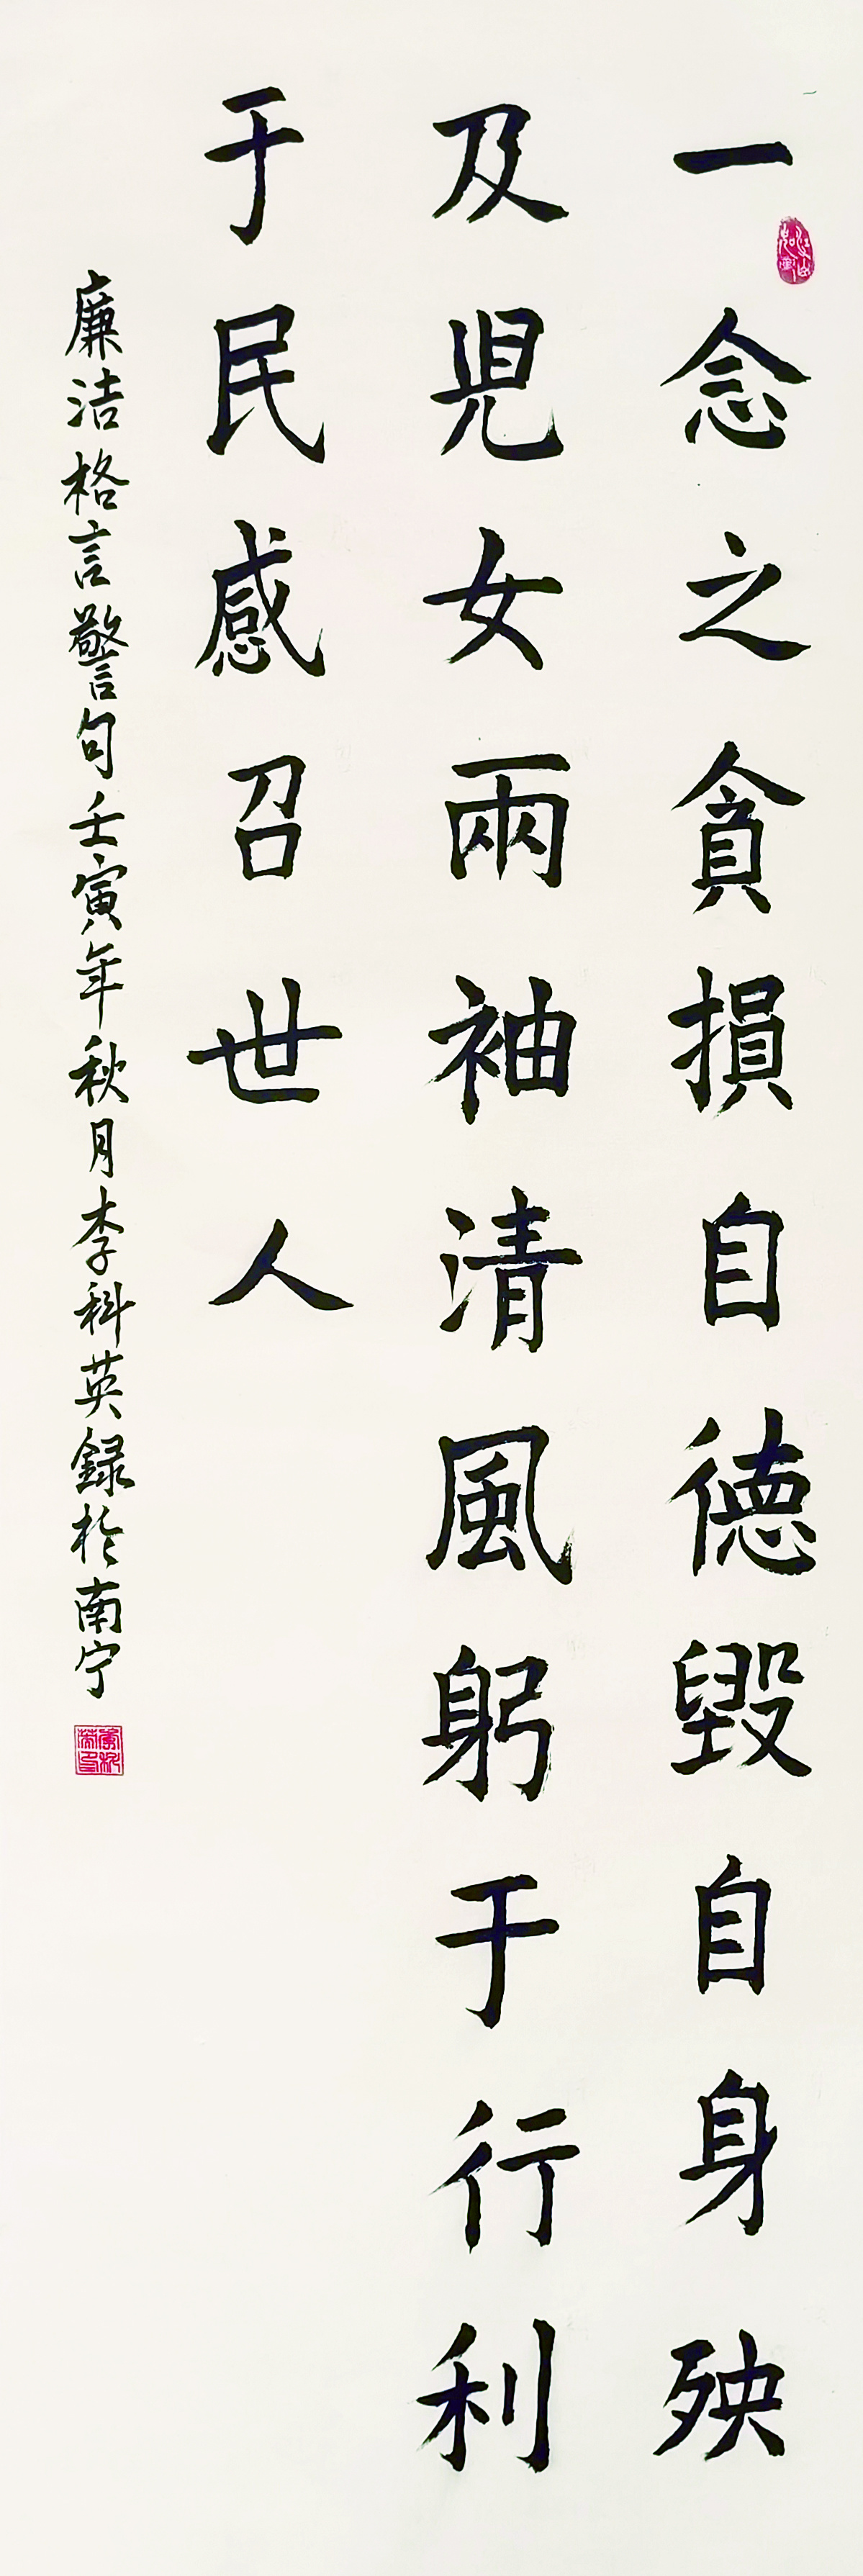 一念之貪損自德毀自身殃
及児女兩袖清風躬于行利
于民感召世人
廉洁格言警句壬寅年秋月李科英録於南宁